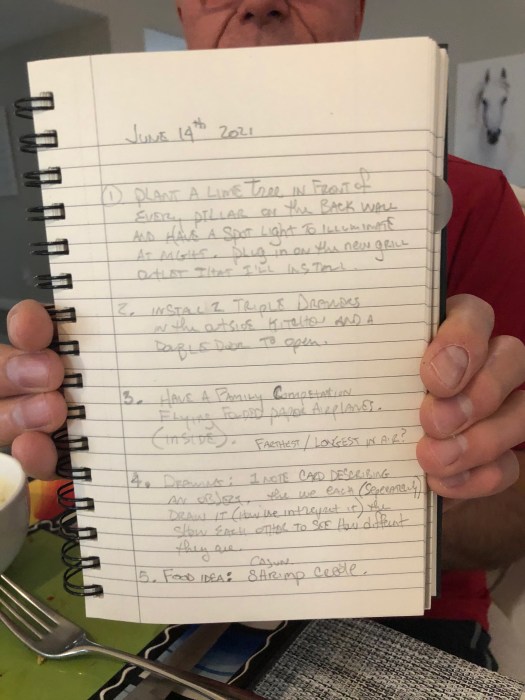 June 14th 2021
① Plant a lime tree in front of
every pillar on the back wall
and have a spot light to illuminate
at night. Plug in on the new grill
outlet that I'll install.
2. Install 2 triple drawers
in the outside kitchen and a
double door to open.
3. Have a family competation
flying folded paper airplanes.
(inside). Farthest / Longest in air?
4. Drawing: 1 note card describing
an object. the we each (seperately)
draw it (how we interpret it) the
show each other to see how different
they are.
Cajun
5. Food idea: Shrimp